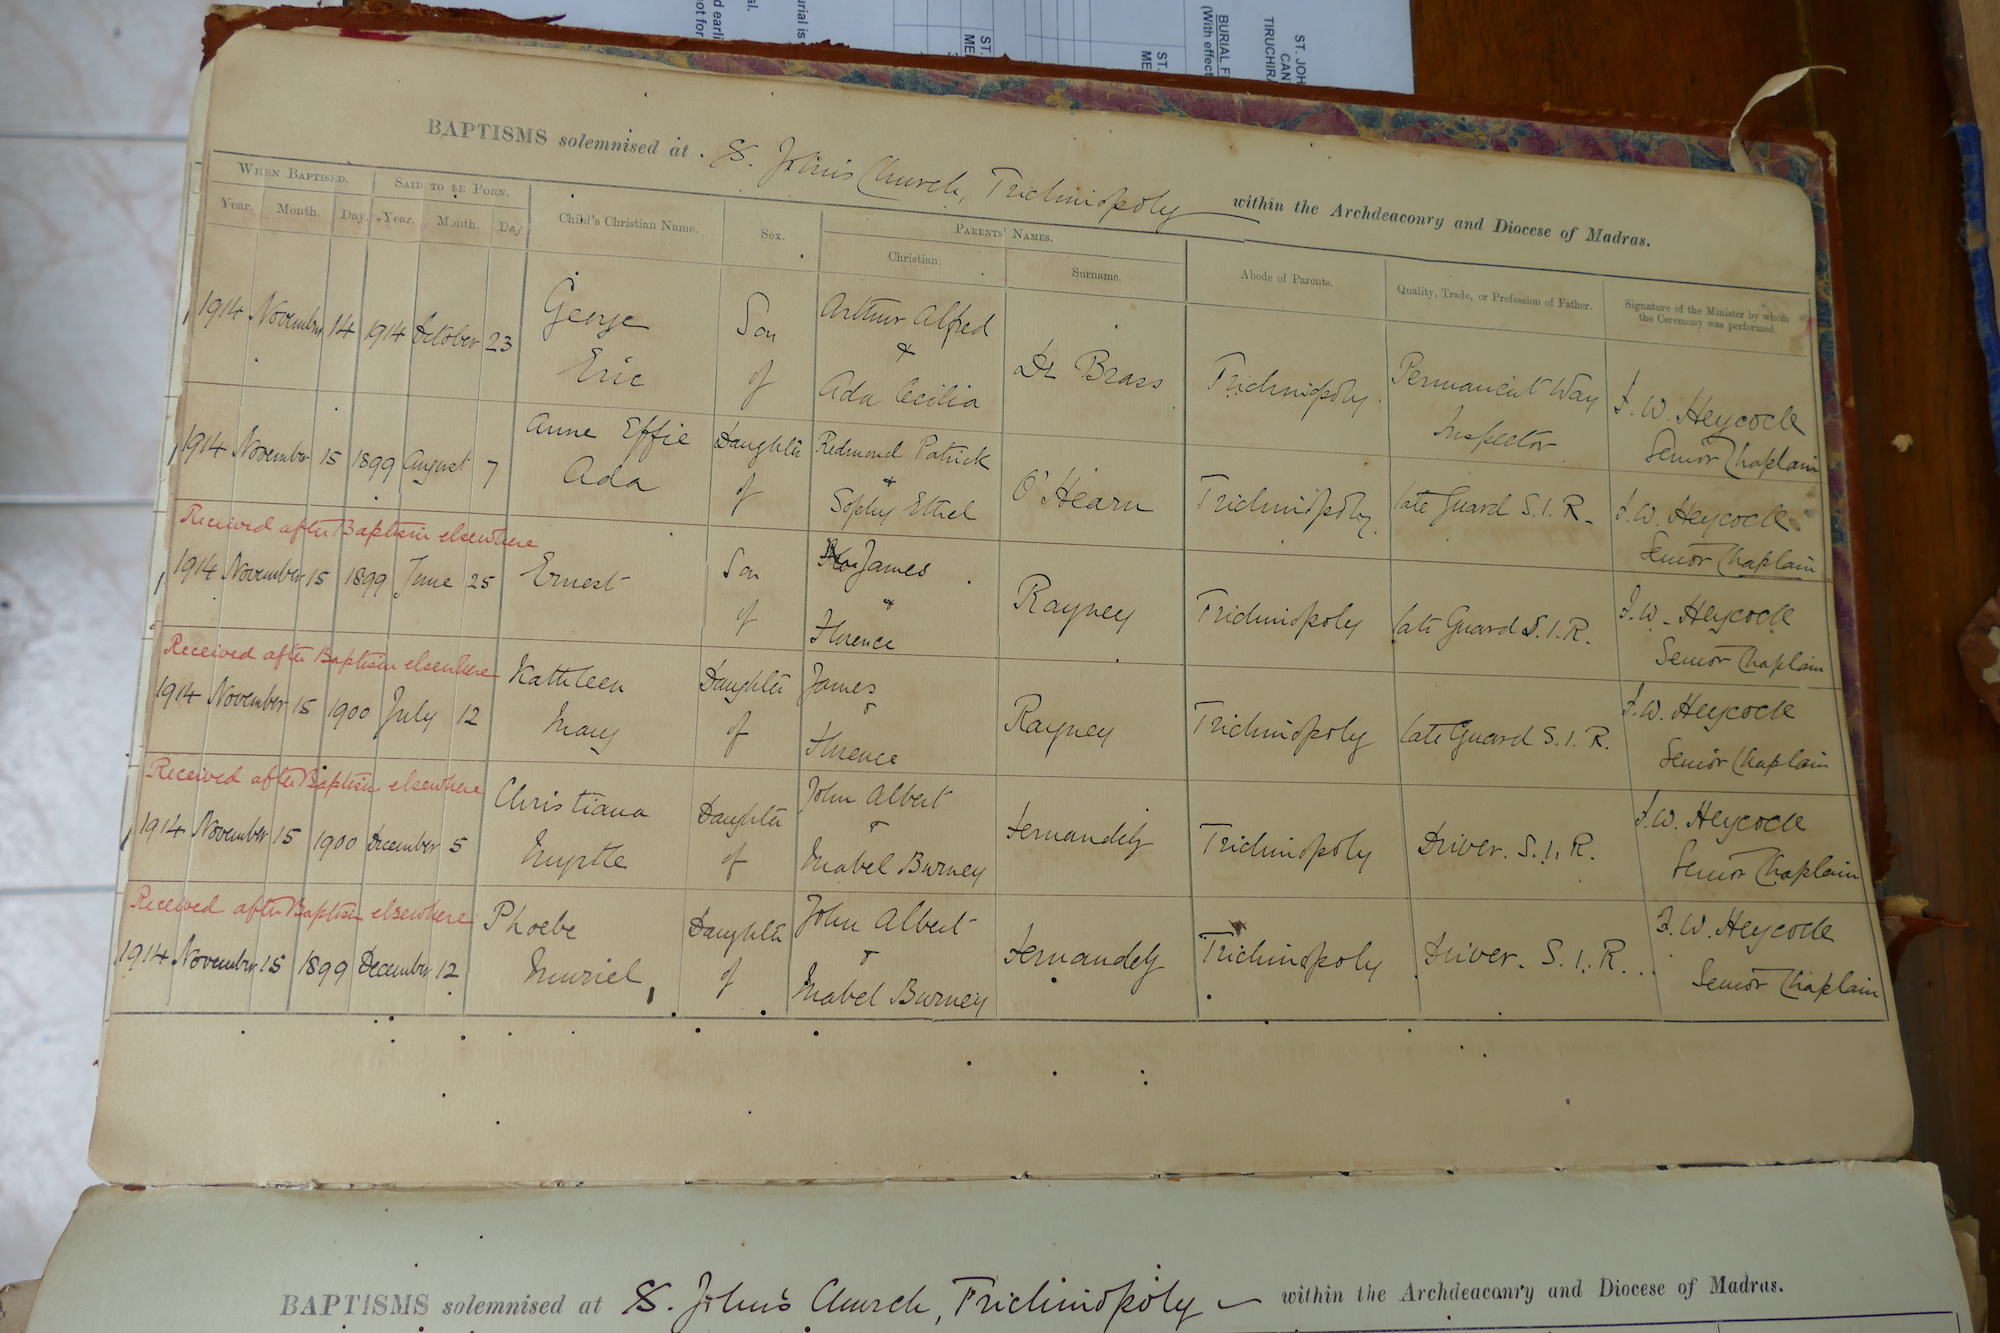 ST. JOH
CAN
TIRUCHIRA
BURIAL F
(With effect
ST.
ME
ST.
ME
urial is
d earli
ot for
BAPTISMS solemnised at S. John's Church, Trichinopoly within the Archdeaconry and Diocese of Madras.
WHEN BAPTISED. SAID TO BE BORN. Child's Christian Name. Sex. PARENTS' NAMES. Abode of Parents. Quality, Trade, or Profession of Father. Signature of the Minister by whom
the Ceremony was performed.
Year. Month. Day. Year. Month. Day Christian. Surname.
1914 November 14 1914 October 23 George Son Arthur Alfred De Brass Trichinopoly Permanent Way F. W. Heycock
Eric of & Inspector Senior Chaplain
Ada Cecilia
1914 November 15 1899 August 7 Anne Effie Daughter Redmond Patrick O'Hearn Trichinopoly. late Guard S. I. R. F. W. Heycock
Ada of & Senior Chaplain
Sophy Ethel
Received after Baptism elsewhere
1914 November 15 1899 June 25 Ernest Son James Rayney Trichinopoly late Guard S. I. R. F. W. Heycock
of & Senior Chaplain
Florence
Received after Baptism elsewhere
1914 November 15 1900 July 12 Kathleen Daughter James Rayney Trichinopoly late Guard S. I. R. F. W. Heycock
Mary of & Senior Chaplain
Florence
Received after Baptism elsewhere
1914 November 15 1900 December 5 Christiana Daughter John Albert Fernandez Trichinopoly Driver. S. I. R. F. W. Heycock
Myrtle of & Senior Chaplain
Mabel Burney
Received after Baptism elsewhere
1914 November 15 1899 December 12 Phoebe Daughter John Albert Fernandez Trichinopoly Driver. S. I. R. F. W. Heycock
Muriel of & Senior Chaplain
Mabel Burney
BAPTISMS solemnised at S. John's Church, Trichinopoly within the Archdeaconry and Diocese of Madras.